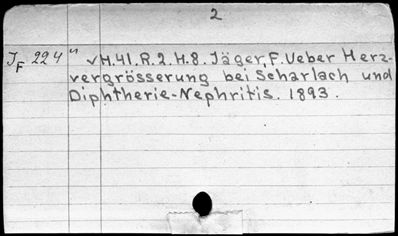 2
J F 224" √H.41.R.2.H.8. Jäger, F. Ueber Herz-
vergrösserung bei Scharlach und
Diphtherie-Nephritis. 1893.